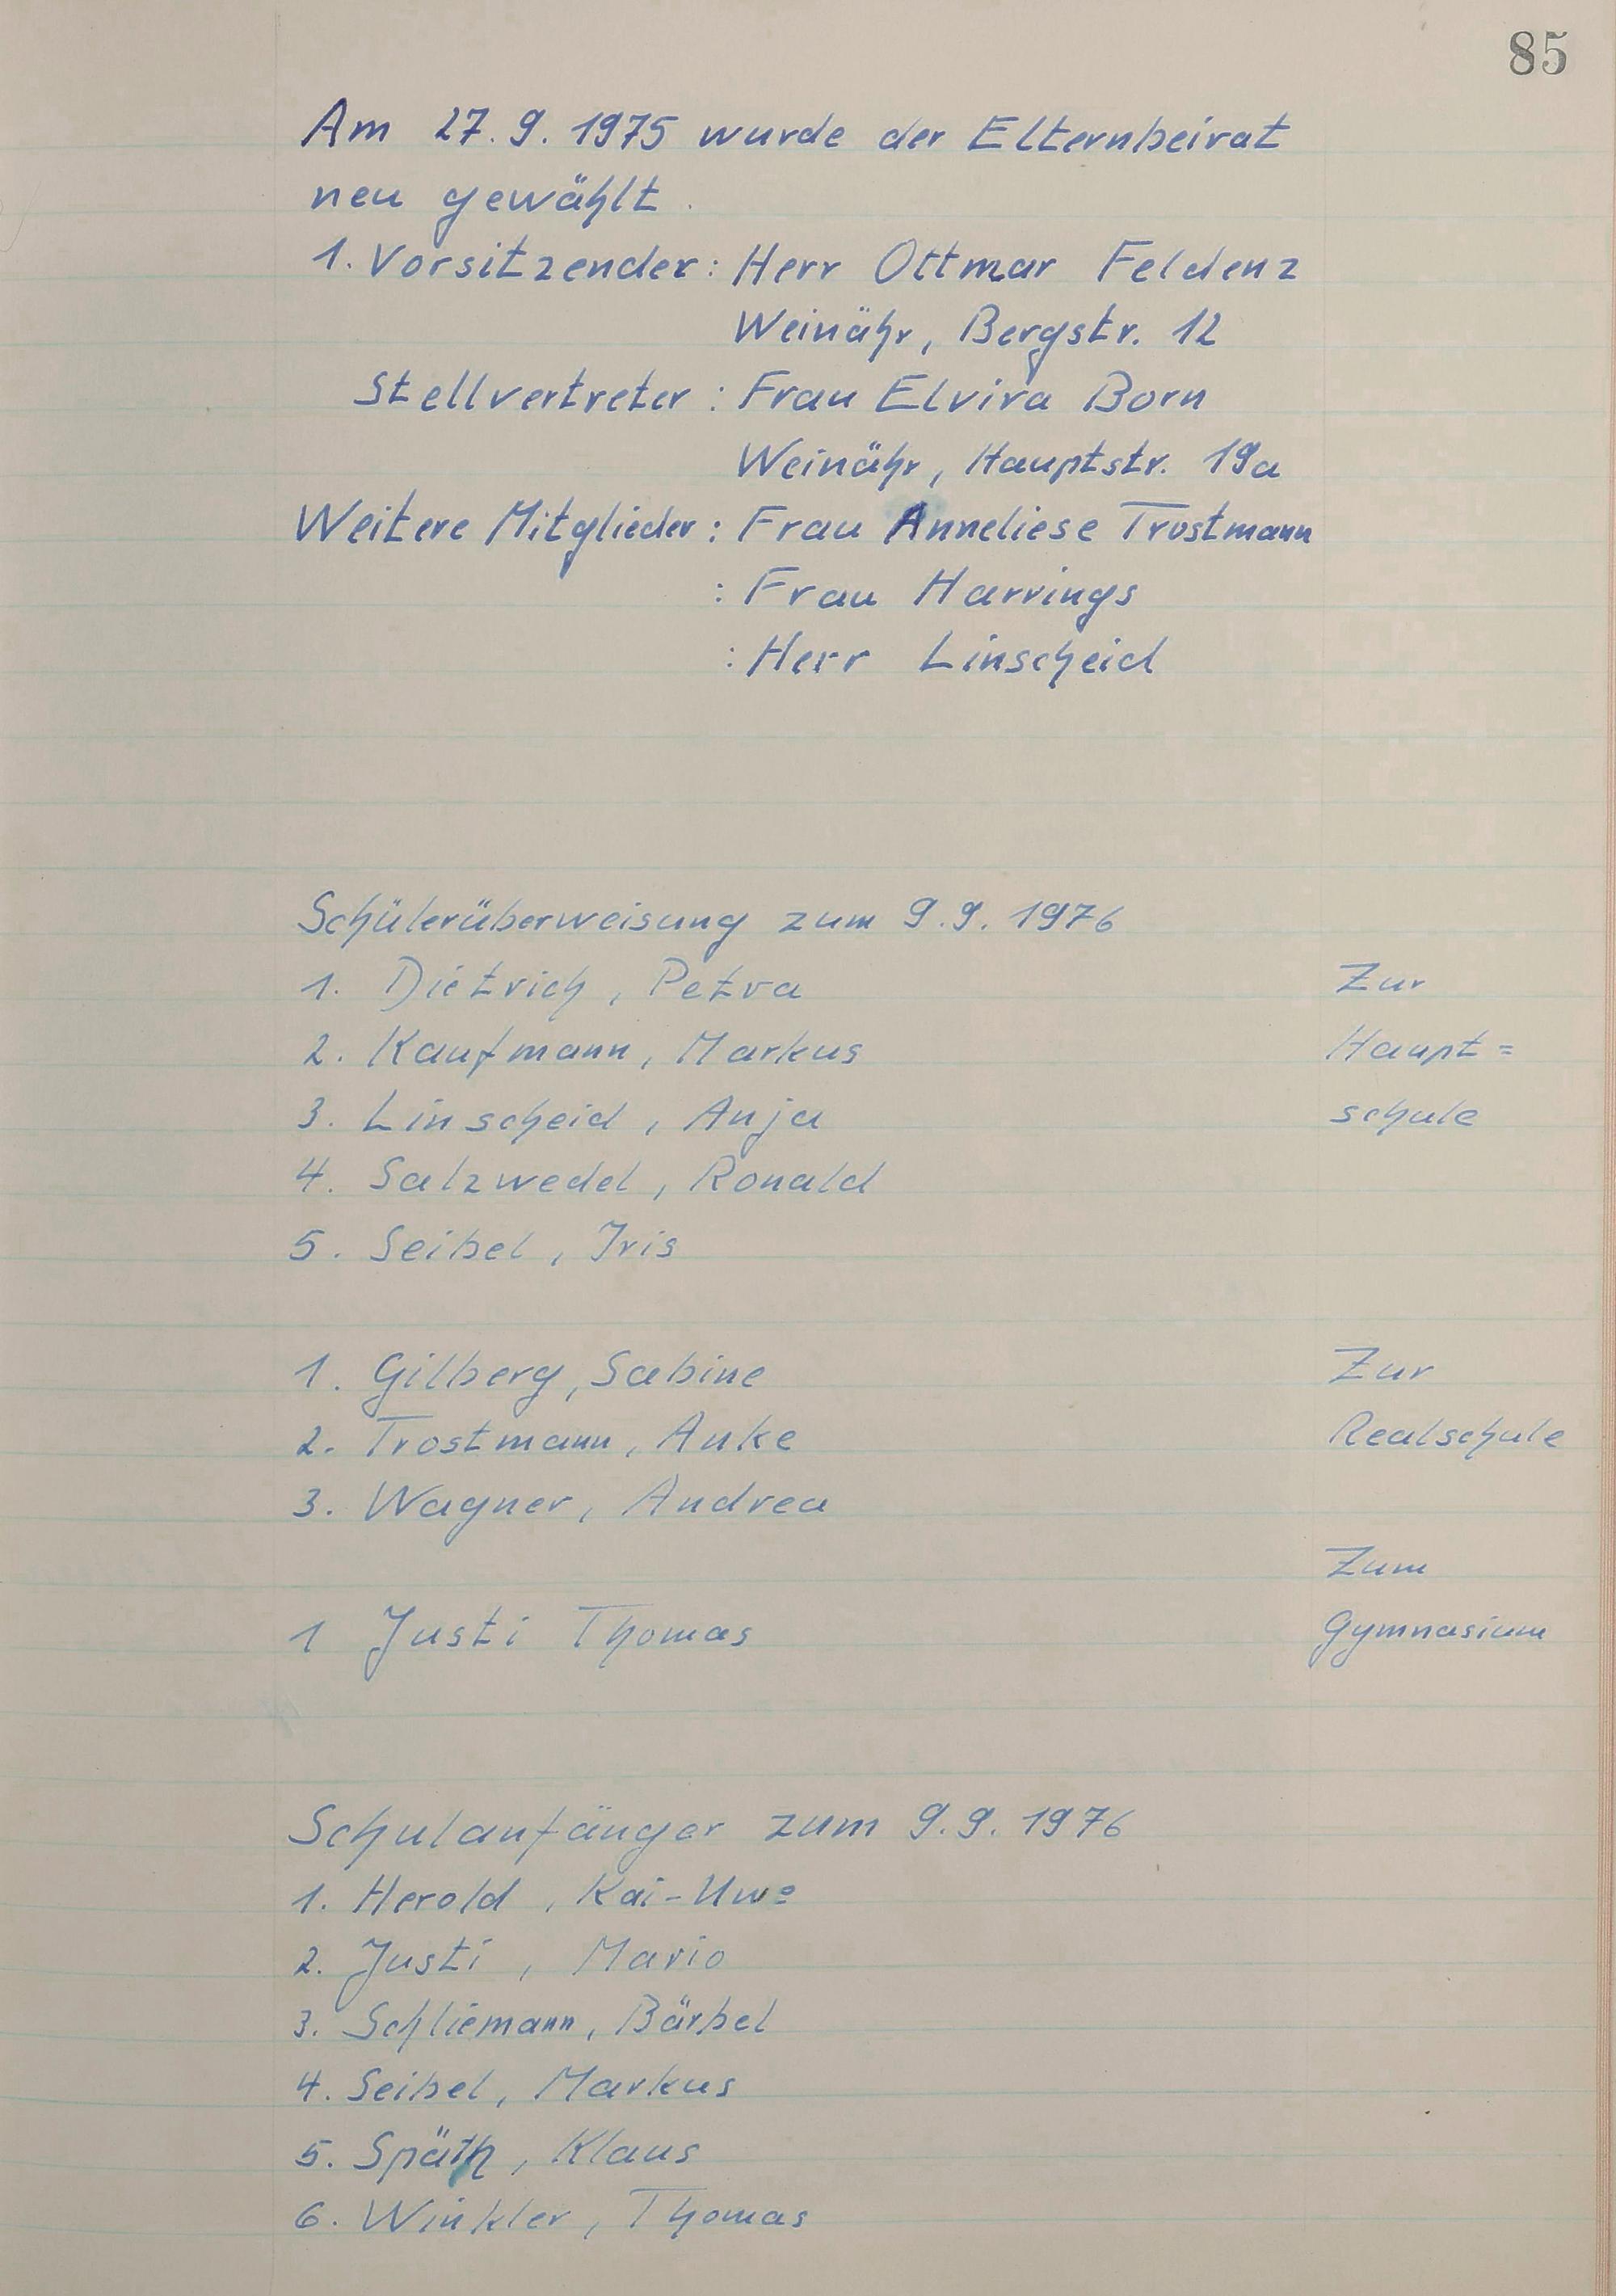 85
Am 27. 9. 1975 wurde der Elternbeirat
neu gewählt.
1. Vorsitzender: Herr Ottmar Feldenz
Weinähr, Bergstr. 12
Stellvertreter : Frau Elvira Born
Weinähr, Hauptstr. 19a
Weitere Mitglieder : Frau Anneliese Trostmann
: Frau Harrings
: Herr Linscheid
Schülerüberweisung zum 9.9.1976
1. Dietrich, Petra Zur
2. Kaufmann, Markus Haupt=
3. Linscheid, Anja schule
4. Salzwedel, Ronald
5. Seibel, Iris
1. Gilberg, Sabine Zur
2. Trostmann, Anke Realschule
3. Wagner, Andrea
Zum
1 Justi Thomas Gymnasium
Schulanfänger zum 9.9.1976
1. Herold, Kai-Uwe
2. Justi, Mario
3. Schliemann, Bärbel
4. Seibel, Markus
5. Späth, Klaus
6. Winkler, Thomas